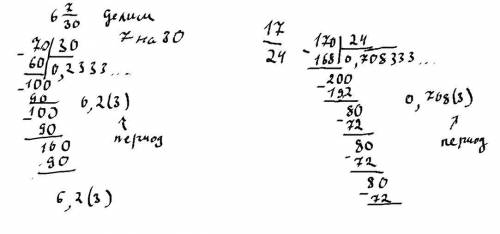 6 7/30 делим
7 на 30
- 70 | 30
60 | 0,2333...
- 100
90
- 100 6,2(3)
90 период
100
90
6,2(3)
17/24
- 170 | 24
168 | 0,708333...
- 200
192 0,708(3)
80 период
- 72
80
- 72
80
- 72